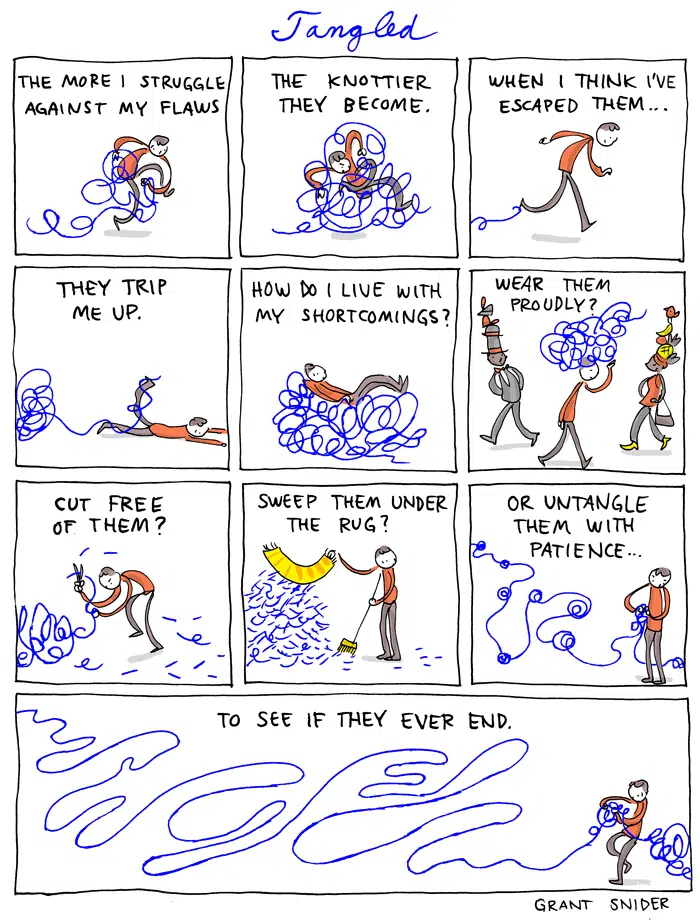 Tangled
THE MORE I STRUGGLE
AGAINST MY FLAWS
THE KNOTTIER
THEY BECOME.
WHEN I THINK I'VE
ESCAPED THEM...
THEY TRIP
ME UP.
HOW DO I LIVE WITH
MY SHORTCOMINGS?
WEAR THEM
PROUDLY?
CUT FREE
OF THEM?
SWEEP THEM UNDER
THE RUG?
OR UNTANGLE
THEM WITH
PATIENCE...
TO SEE IF THEY EVER END.
GRANT SNIDER